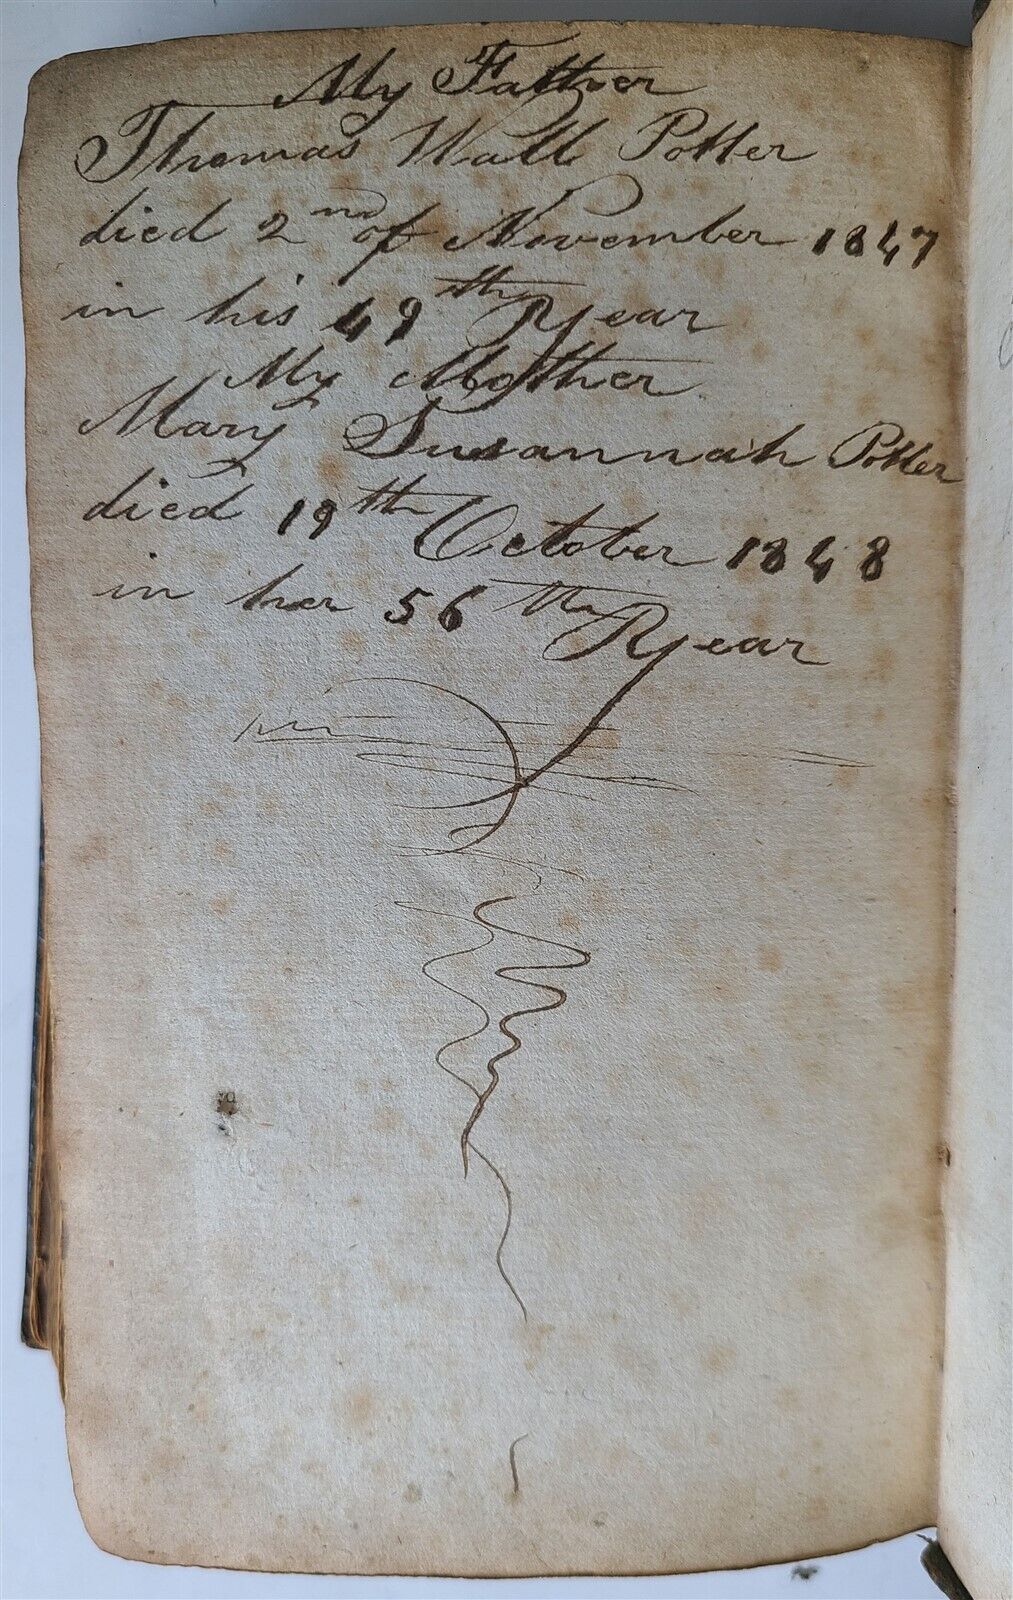 My Father
Thomas Wall Potter
died 2nd of November 1847
in his 49th Year
My Mother
Mary Susannah Potter
died 19th October 1848
in her 56th Year